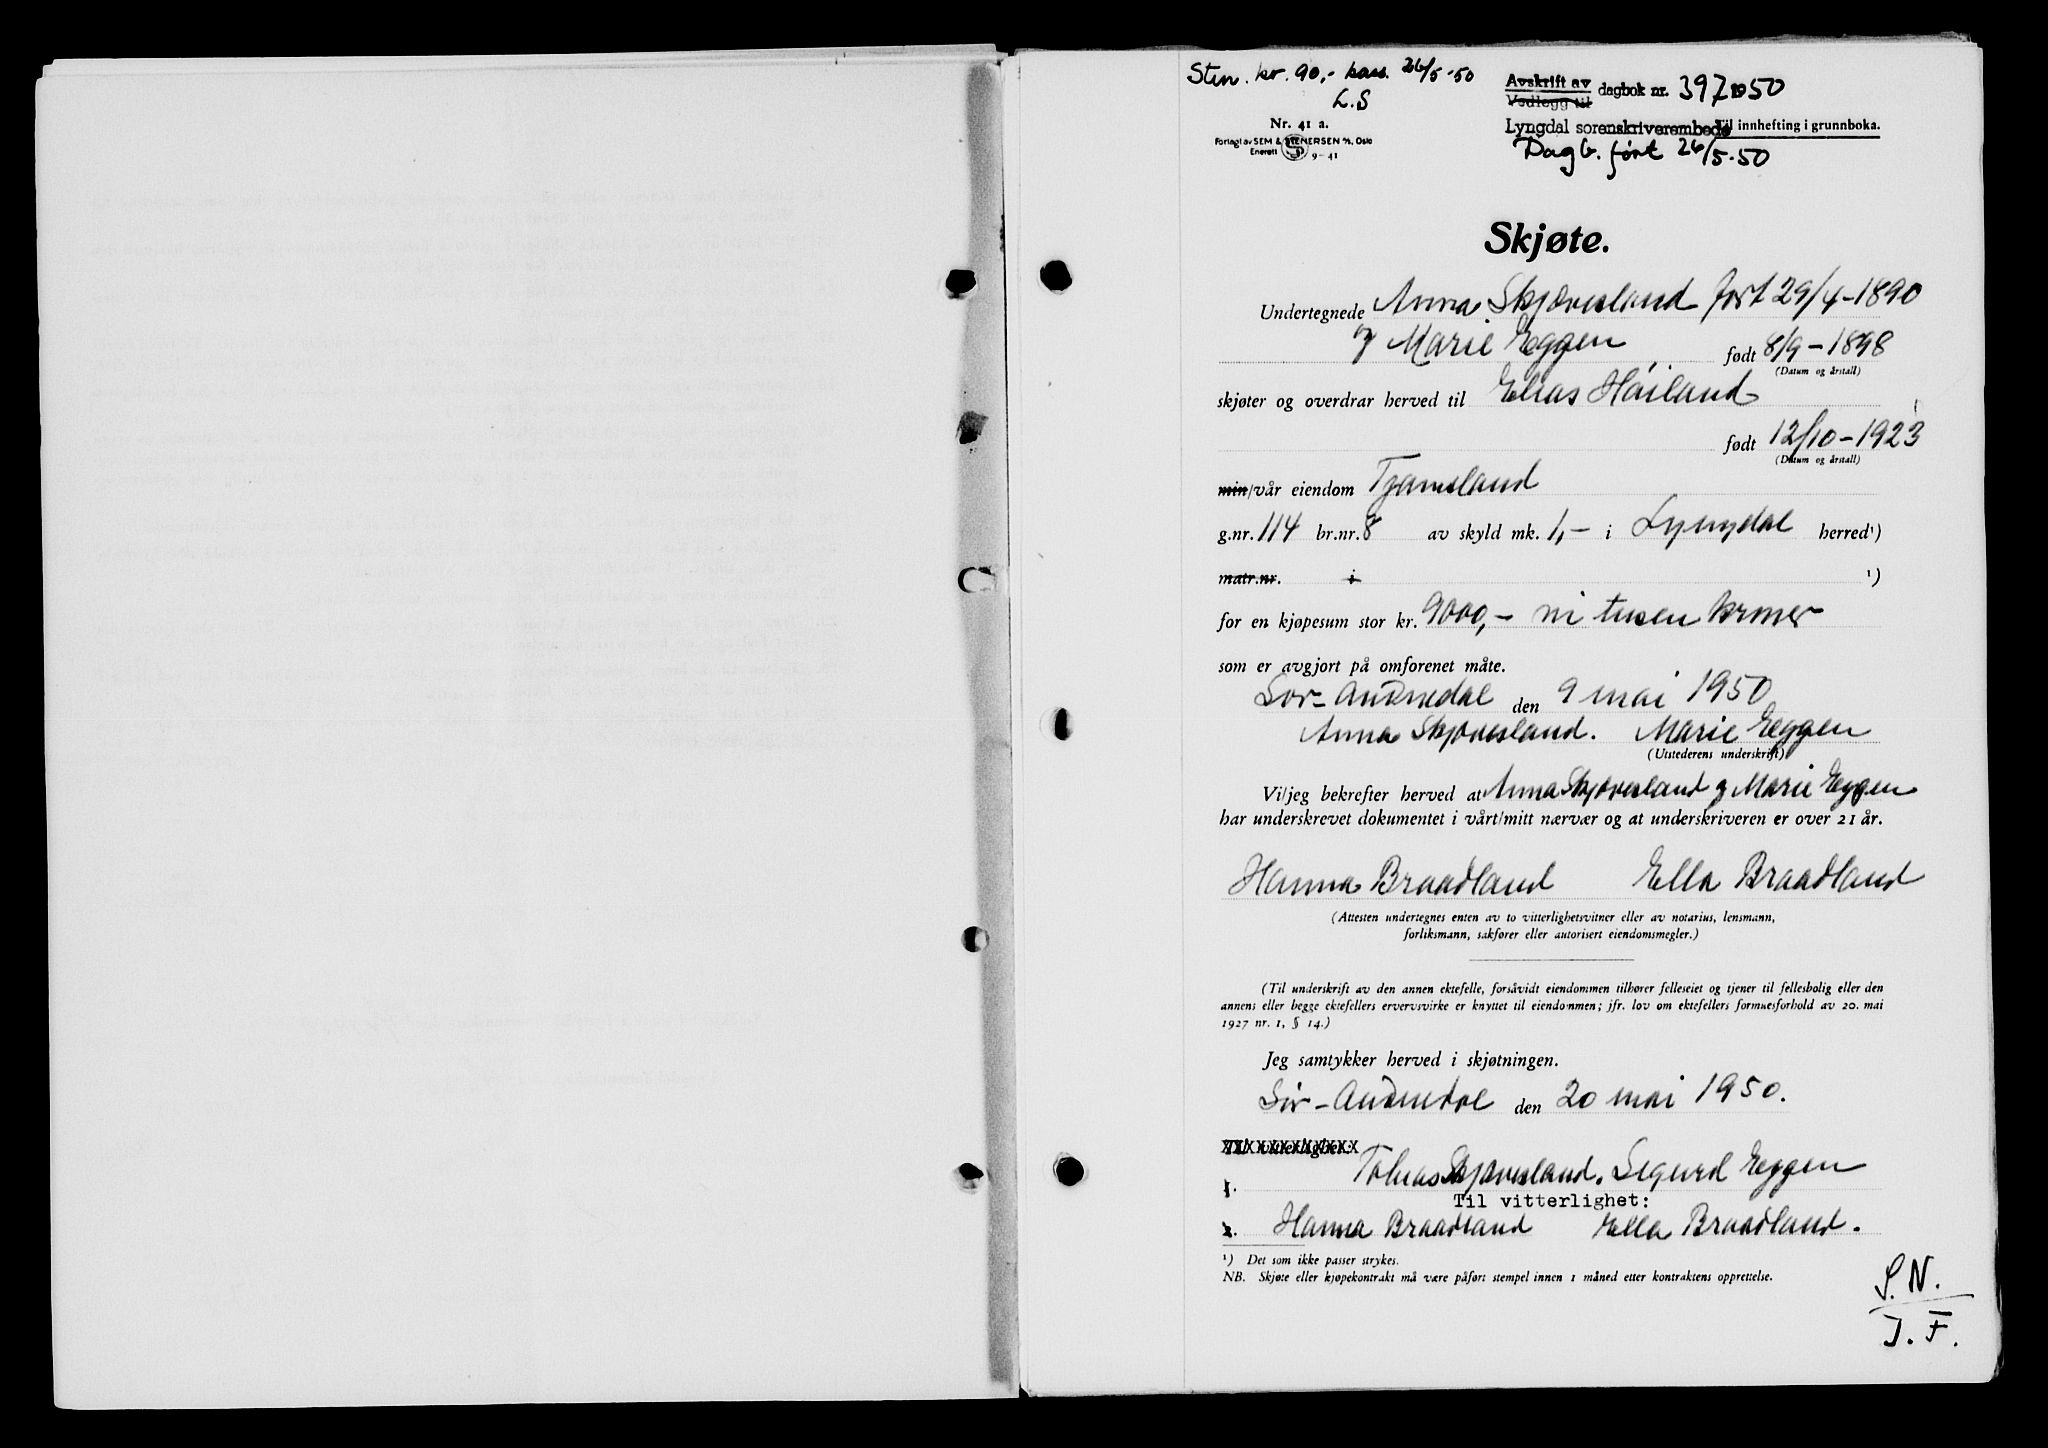 Stem. kr. 90,- kass. 26/5-50
L.S
Nr. 41 a.
Forlagt av SEM & STENERSEN A/S, Oslo
Enerett S 9-41
Avskrift av
Vedlegg til dagbok nr. 397 1950
Lyngdal sorenskriverembede
Til innhefting i grunnboka.
Dagb. ført 26/5.50
Skjøte.
Undertegnede Anna Skjævesland født 29/4-1890
og Marie Eggen født 8/9-1898
(Datum og årstall)
skjøter og overdrar herved til Elias Høiland
født 12/10-1923
(Datum og årstall)
min/vår eiendom Tjamsland
g.nr. 114 br.nr. 8 av skyld mk. 1,- i Lyngdal herred¹)
matr.nr. i ¹)
for en kjøpesum stor kr. 9000,- ni tusen kroner
som er avgjort på omforenet måte.
Sør-Audnedal den 9 mai 1950
Anna Skjævesland. Marie Eggen
(Utstederens underskrift)
Vi/jeg bekrefter herved at Anna Skjævesland og Marie Eggen
har underskrevet dokumentet i vårt/mitt nærvær og at underskriveren er over 21 år.
Hanna Braadland Ella Braadland
(Attesten undertegnes enten av to vitterlighetsvitner eller av notarius, lensmann,
forliksmann, sakfører eller autorisert eiendomsmegler.)
(Til underskrift av den annen ektefelle, forsåvidt eiendommen tilhører felleseiet og tjener til fellesbolig eller den
annens eller begge ektefellers ervervsvirke er knyttet til eiendommen; jfr. lov om ektefellers formuesforhold av 20. mai
1927 nr. 1, § 14.)
Jeg samtykker herved i skjøtningen.
Sør-Audnedal den 20 mai 1950.
Til vitterlighet:
1. Tobias Skjævesland. Sigurd Eggen
Til vitterlighet:
2. Hanna Braadland Ella Braadland.
¹) Det som ikke passer strykes.
NB. Skjøte eller kjøpekontrakt må være påført stempel innen 1 måned etter kontraktens opprettelse.
S.N.
J.F.